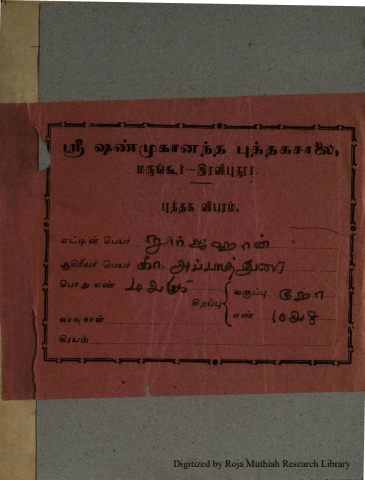 ஸ்ரீ ஷண்முகானந்த புத்தகசாலை,
மருங்கூர்—இரவிபுதூர்.
புத்தக விபரம்.
ஏட்டின் பெயர் நூர்ஜஹான்
ஆசிரியர் பெயர் கீ. அப்பாத்துரை
பொது எண்
சிறப்பு
வகுப்பு
எண்
வரவு நாள்
கிரயம்
Digitized by Roja Muthiah Research Library